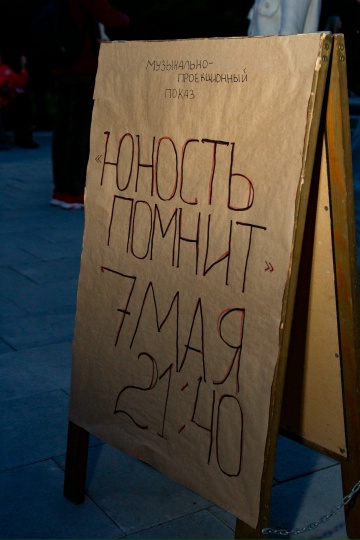 МУЗЫКАЛЬНО-
ПРОЕКЦИОННЫЙ
ПОКАЗ
«ЮНОСТЬ
ПОМНИТ»
7 МАЯ
21:40